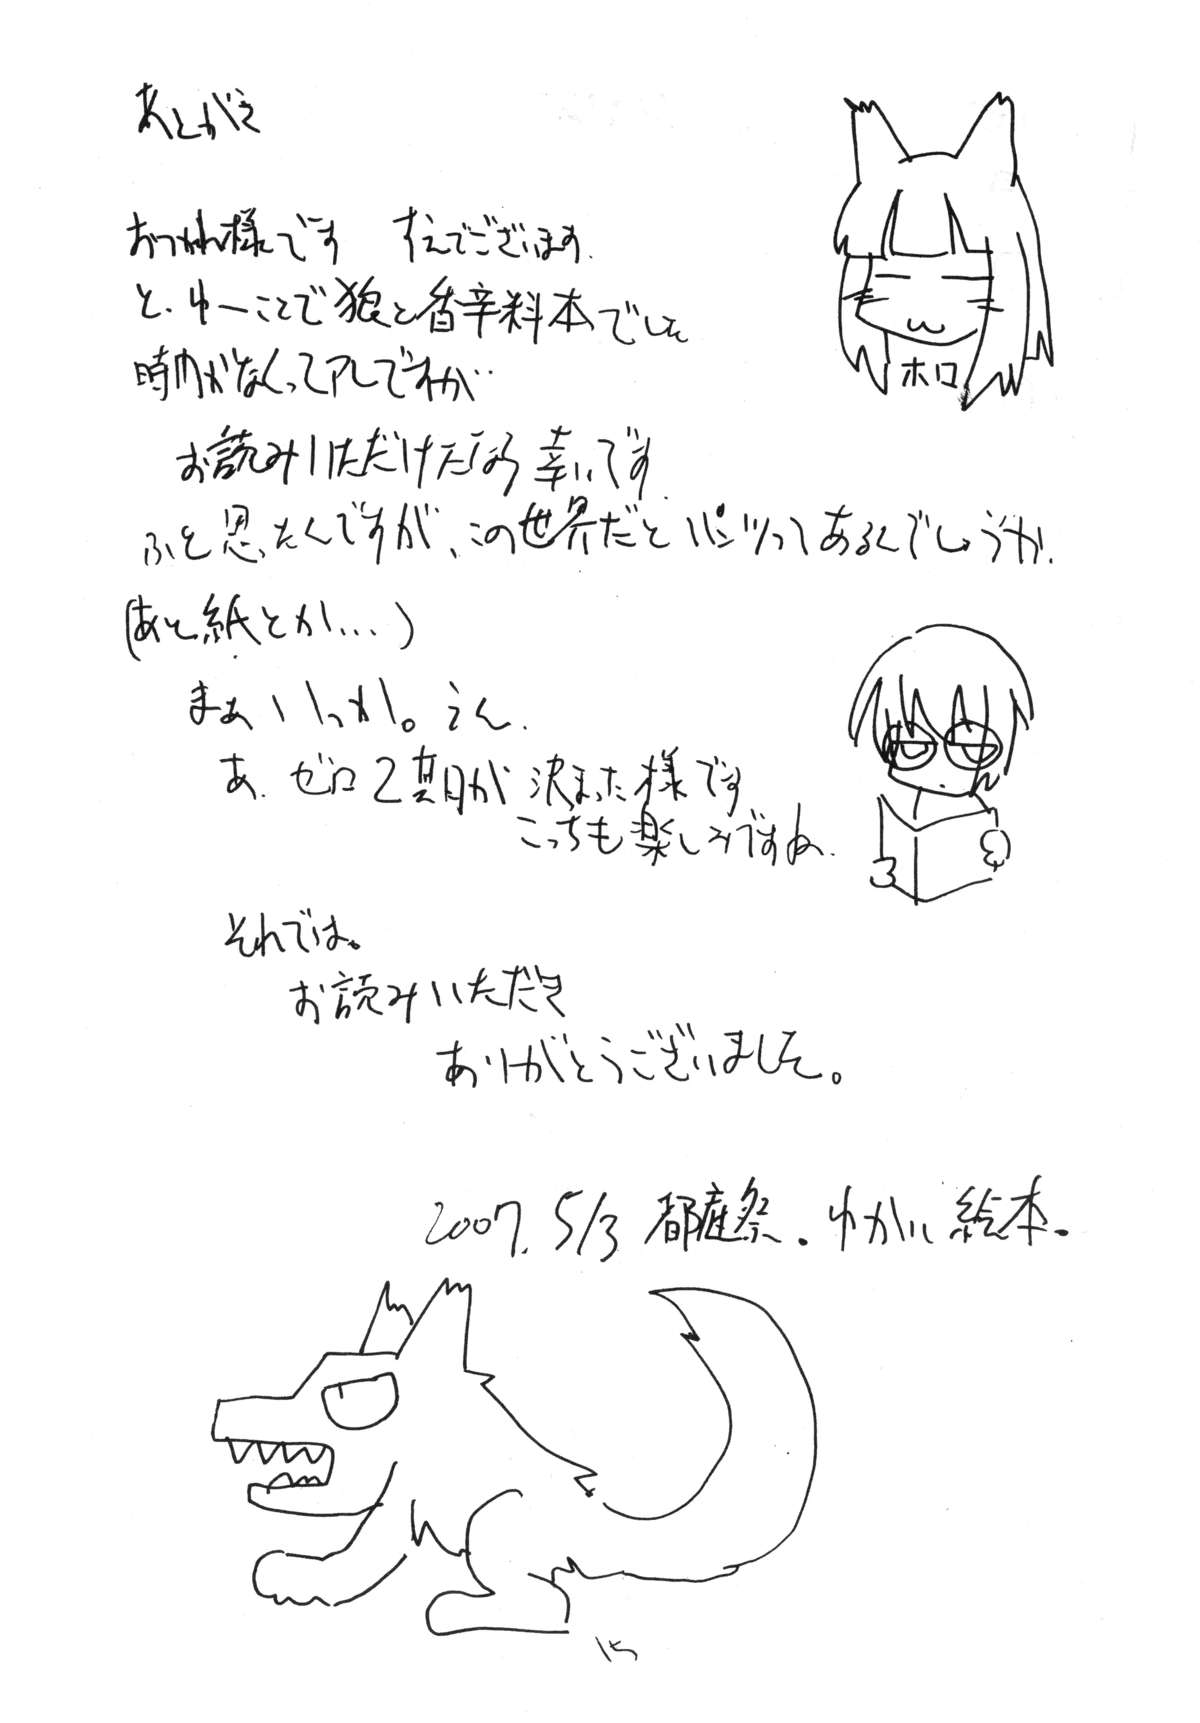 あとがき
おつかれ様です すえでございます.
と、ゆーことで狼と香辛料本でした
時間がなくってアレですが…
お読みいただけたなら幸いです.
ふと思ったんですが、この世界だとパンツってあるんでしょうか.
(あと紙とか…)
まぁいっか。うん.
あ、ゼロ2期が決まった様です
こっちも楽しみですね.
それでは。
お読みいただき
ありがとうございました。
2007. 5/3 都産祭. ゆかいに絵本.
ホロ
15